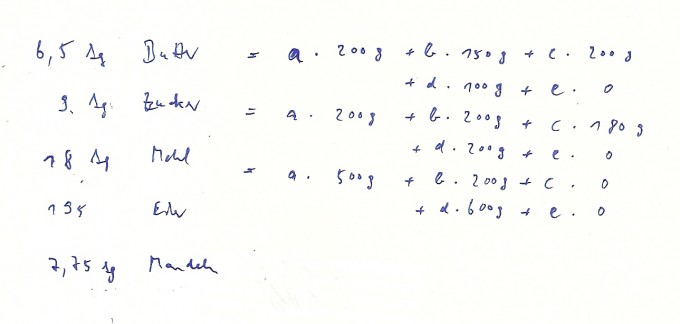 6,5 kg Butter = a · 200g + b · 150g + c · 200g
+ d · 100g + e · 0
9 kg Zucker = a · 200g + b · 200g + c · 180g
+ d · 200g + e · 0
18 kg Mehl = a · 500g + b · 200g + c · 0
+ d · 600g + e · 0
195 Eier
7,75 kg Mandeln